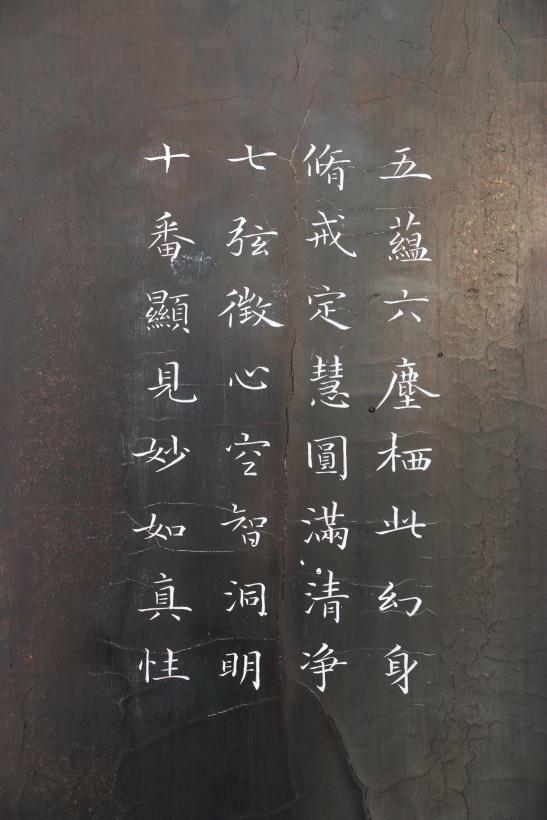 五蘊六塵栖此幻身
脩戒定慧圓滿清净
七弦徵心空智洞明
十番顯見妙如真性